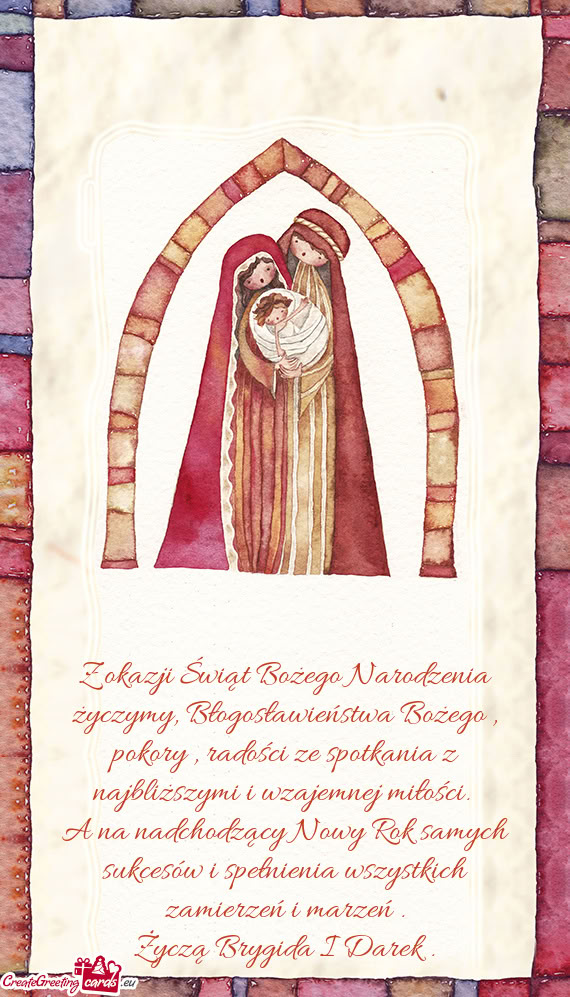 Z okazji Świąt Bożego Narodzenia
życzymy, Błogosławieństwa Bożego ,
pokory , radości ze spotkania z
najbliższymi i wzajemnej miłości.
A na nadchodzący Nowy Rok samych
sukcesów i spełnienia wszystkich
zamierzeń i marzeń .
Życzą Brygida I Darek .
CreateGreeting cards .eu